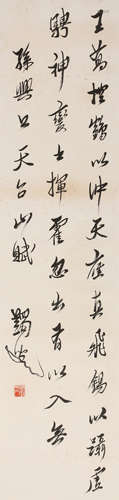 王喬控鶴以沖天應真飛錫以躡虛
騁神變之揮霍忽出有以入無
孫興公天台山賦
蠲叟